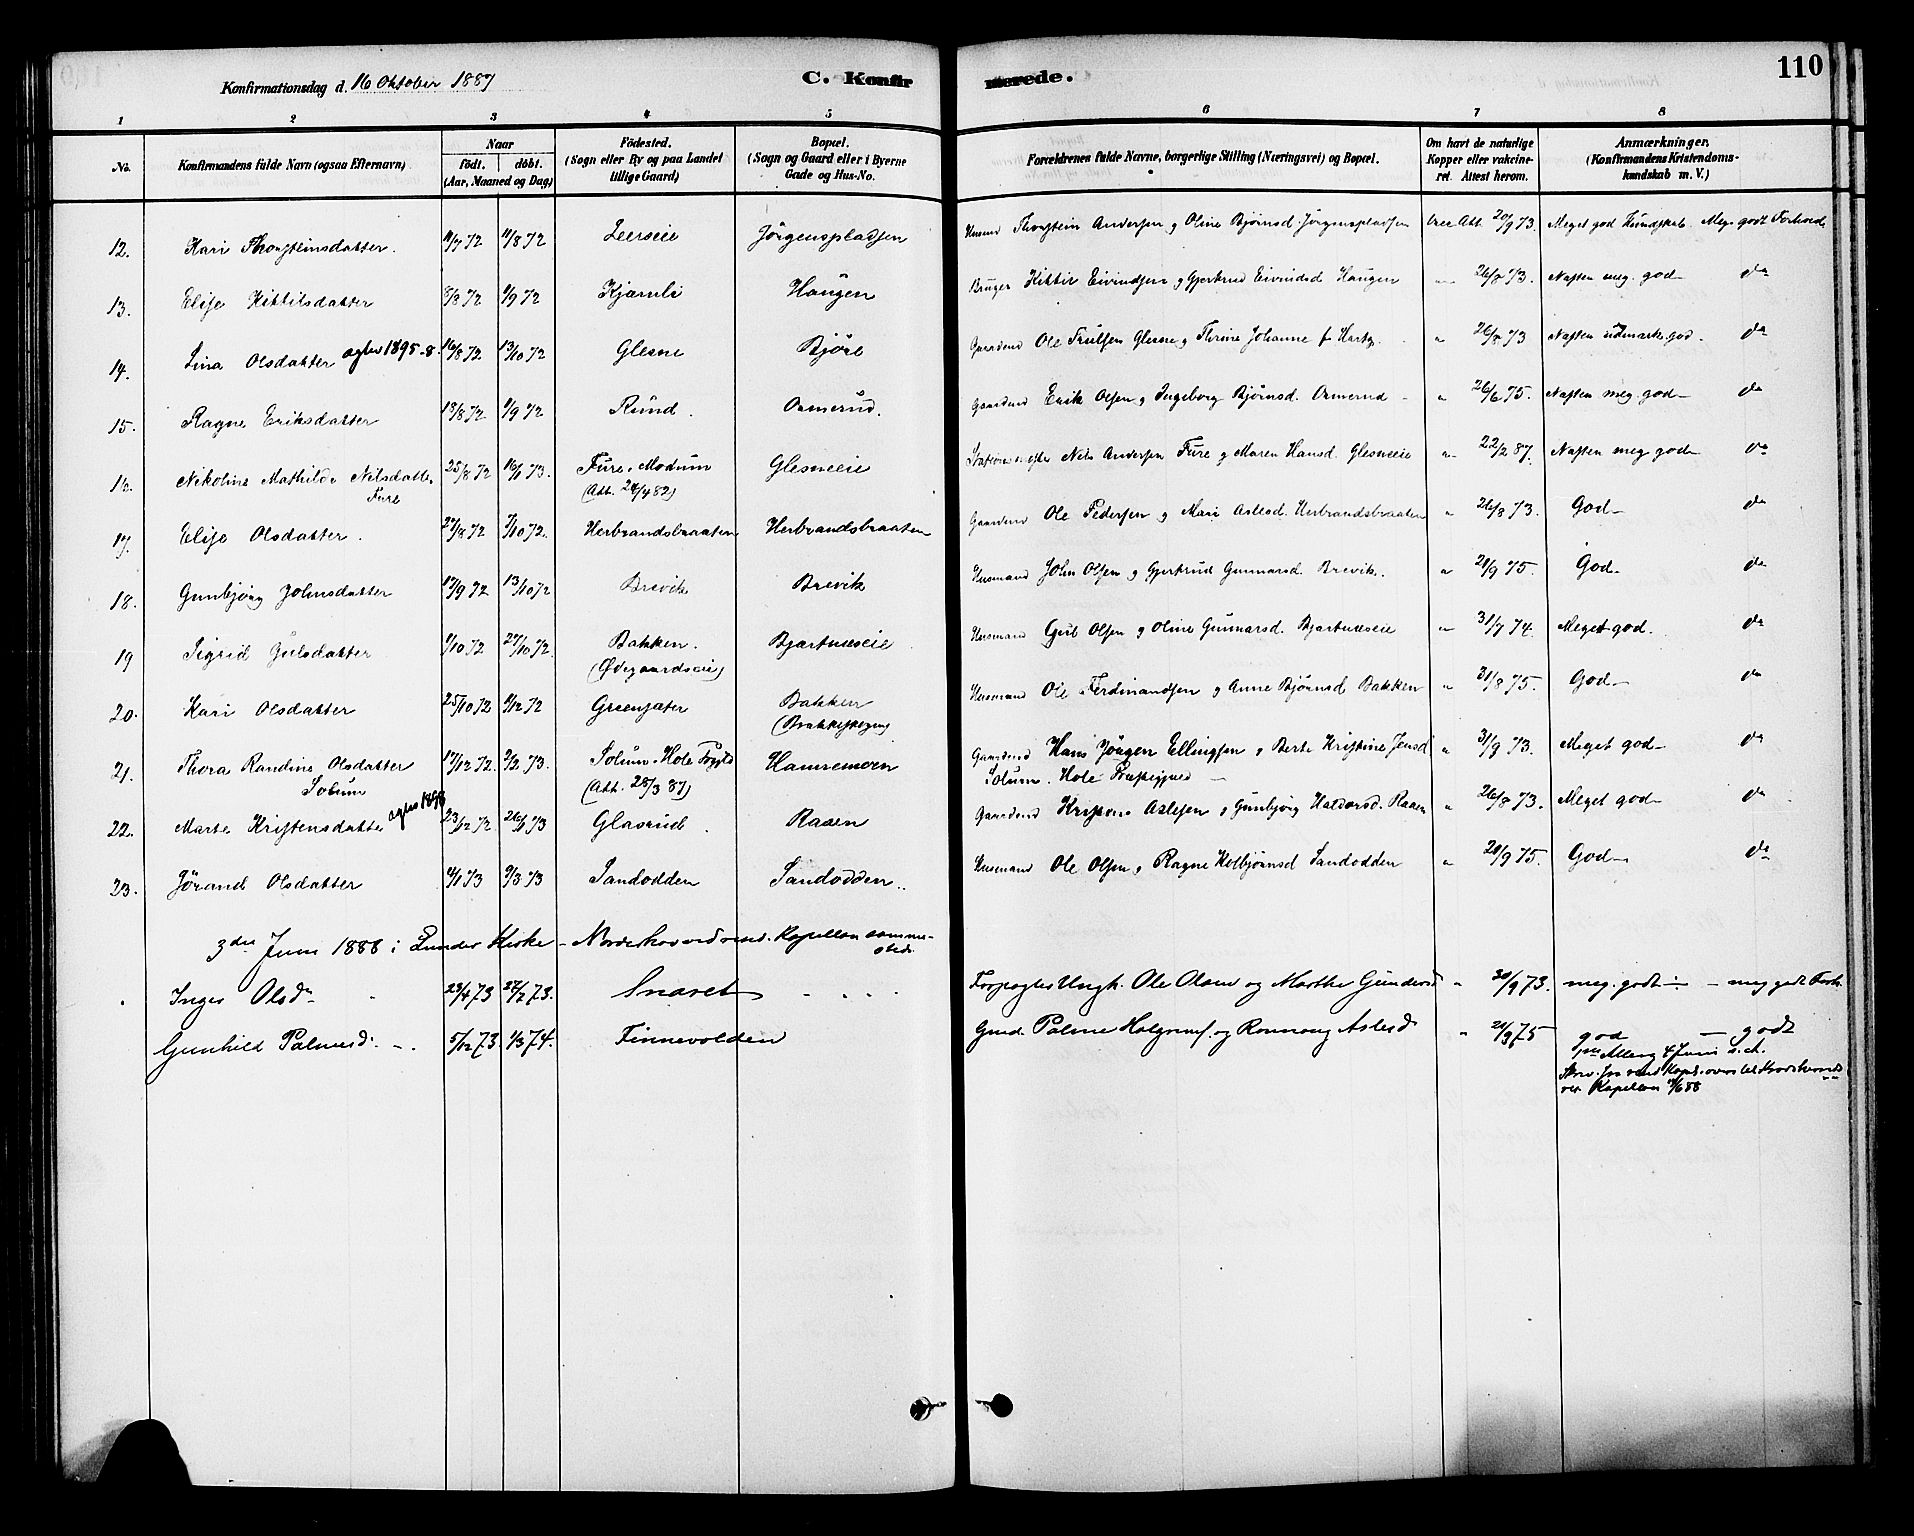 Konfirmationsdag d. 16 Oktober 1887
C. Konfirmerede.
110
1 2 3 4 5 6 7 8
No. Konfirmandens fulde Navn (ogsaa Efternavn) Naar födt. döbt. (Aar, Maaned og Dag) Födested. (Sogn eller By og paa Landet tillige Gaard) Bopæl. (Sogn og Gaard eller i Byerne Gade og Hus-No. Forældrenes fulde Navne, borgerlige Stilling (Næringsvei) og Bopæl. Om havt de naturlige Kopper eller vakcineret. Attest herom. Anmærkninger, (Konfirmandens Kristendomskundskab m. V.)
12. Kari Thorsteinsdatter. 11/7 72 11/8 72 Leerseie Jörgenspladsen Husmd Thorstein Andersen g Oline Bjørnsd. Jörgenspladsen Att. 20/9 73. Meget god Kundskab. Meg. godt Forhold
13. Elise Kittilsdatter 8/8 72 1/9 72 Kjærnli Haugen Bruger Kittil Eivindsen g Gjertrud Eivindsd Haugen 26/8 73. Næsten meg. god do
14. Lina Olsdatter agter 1895-8. 16/8 72 13/10 72 Glesne Björe Gaardmd Ole Trulsen Glesne g Thrine Johanne f Hartz. " 26/8 73 Næsten udmærk. god. do
15. Ragne Eriksdatter 13/8 72 1/9 72 Rund. Ormerud. Gaardmd Erik Olsen g Ingeborg Bjørnsd. Ormerud " 26/6 75. Næsten meg. god do
16. Nikoline Mathilde Nilsdatter 25/8 72 16/1 73. Fure. Modum Glesneeie Nils Andersen Fure g Maren Hansd. Glesneeie " 22/2 87. Næsten meg god do
Fure (Att. 24/4 82)
17. Elise Olsdatter. 27/8 72 7/10 72. Herbrandsbraaten Herbrandsbraaten Gaardmd Ole Pedersen g Mari Aslesd. Herbrandsbraaten " 26/8 73. God do
18. Gunbjørg Johnsdatter 17/9 72 13/10 72 Brevik Brevik Husmand John Olsen g Gjertrud Gunnarsd. Brevik. " 21/9 75. God do
19 Sigrid Gulsdatter 1/10 72 27/10 72. Bakken. Bjertnæseie Husmand Gul Olsen g Oline Gunnarsd. Bjertnæseie " 31/7 74. Meget god. do
(Ødegaardseie)
20. Kari Olsdatter 25/10 72 1/12 72 Greensæter Bakken Husmand Ole Ferdinandsen g Anne Bjørnsd Bakken " 31/8 75. God do
21. Thora Randine Olsdatter 17/12 72. 2/2 73. Solum. Hole Hamremoen Gaardmd Hans Jörgen Ellingsen g Berte Kristine Jensd " 31/9 73. Meget god do
Solum (Att. 28/3 87) Solum. Hole Præstegjeld
22. Marte Kristensdatter 23/12 72. 26/1 73 Glasrud Raaen Gaardmd Kristen Aslesen g Gunbjörg Haldorsd. Raaen " 26/8 73. Meget god do
23. Jörand Olsdatter 11/1 73 9/3 73 Sandodden Sandodden. Husmand Ole Olsen g Ragne Kolbjørnsd Sandodden " 21/9 75. God do
3die Juni 1888 i Lunder Kirke – Norderhov ved resid. Kapellan sammesteds.
Inger Olsdr 23/4 73 27/7 73. Snaret Ungk. Ole Olsen og Marthe Gundersd " 30/9 73. meg. godt – meg godt Forh.
Gunhild Palmesd. 5/12 73 1/3 74. Finnevolden Gmd. Palme Halgrimsf. og Rønnaug Aslesd " 21/9 75 god – godt
4 Juni s.A.
res Kapellan 11/6 88